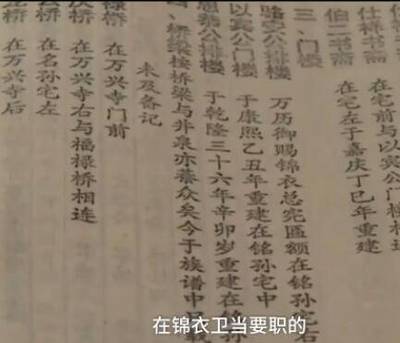 书斋 在宅前与以宾公门楼相连
伯二书斋 在宅左于嘉庆丁巳年重建
三、门楼
宾公排楼 万历御赐锦衣总宪匾额在铭孙
以宾公门楼 于康熙乙丑年重建在铭孙宅中
公排楼 于乾隆三十六年辛卯岁重建在铭
四、桥梁按桥梁与井泉亦綦众矣今于族谱中只载
未及备记
禄桥 在万兴寺门前
桥 在万兴寺右与福禄桥相连
公桥 在名孙宅左
桥 在万兴寺后
在锦衣卫当要职的